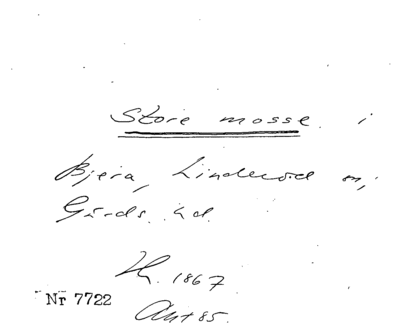 Store mosse i
Bjera, Linderöd sn,
Gärds hd.
1867
Nr 7722
Akt 85.